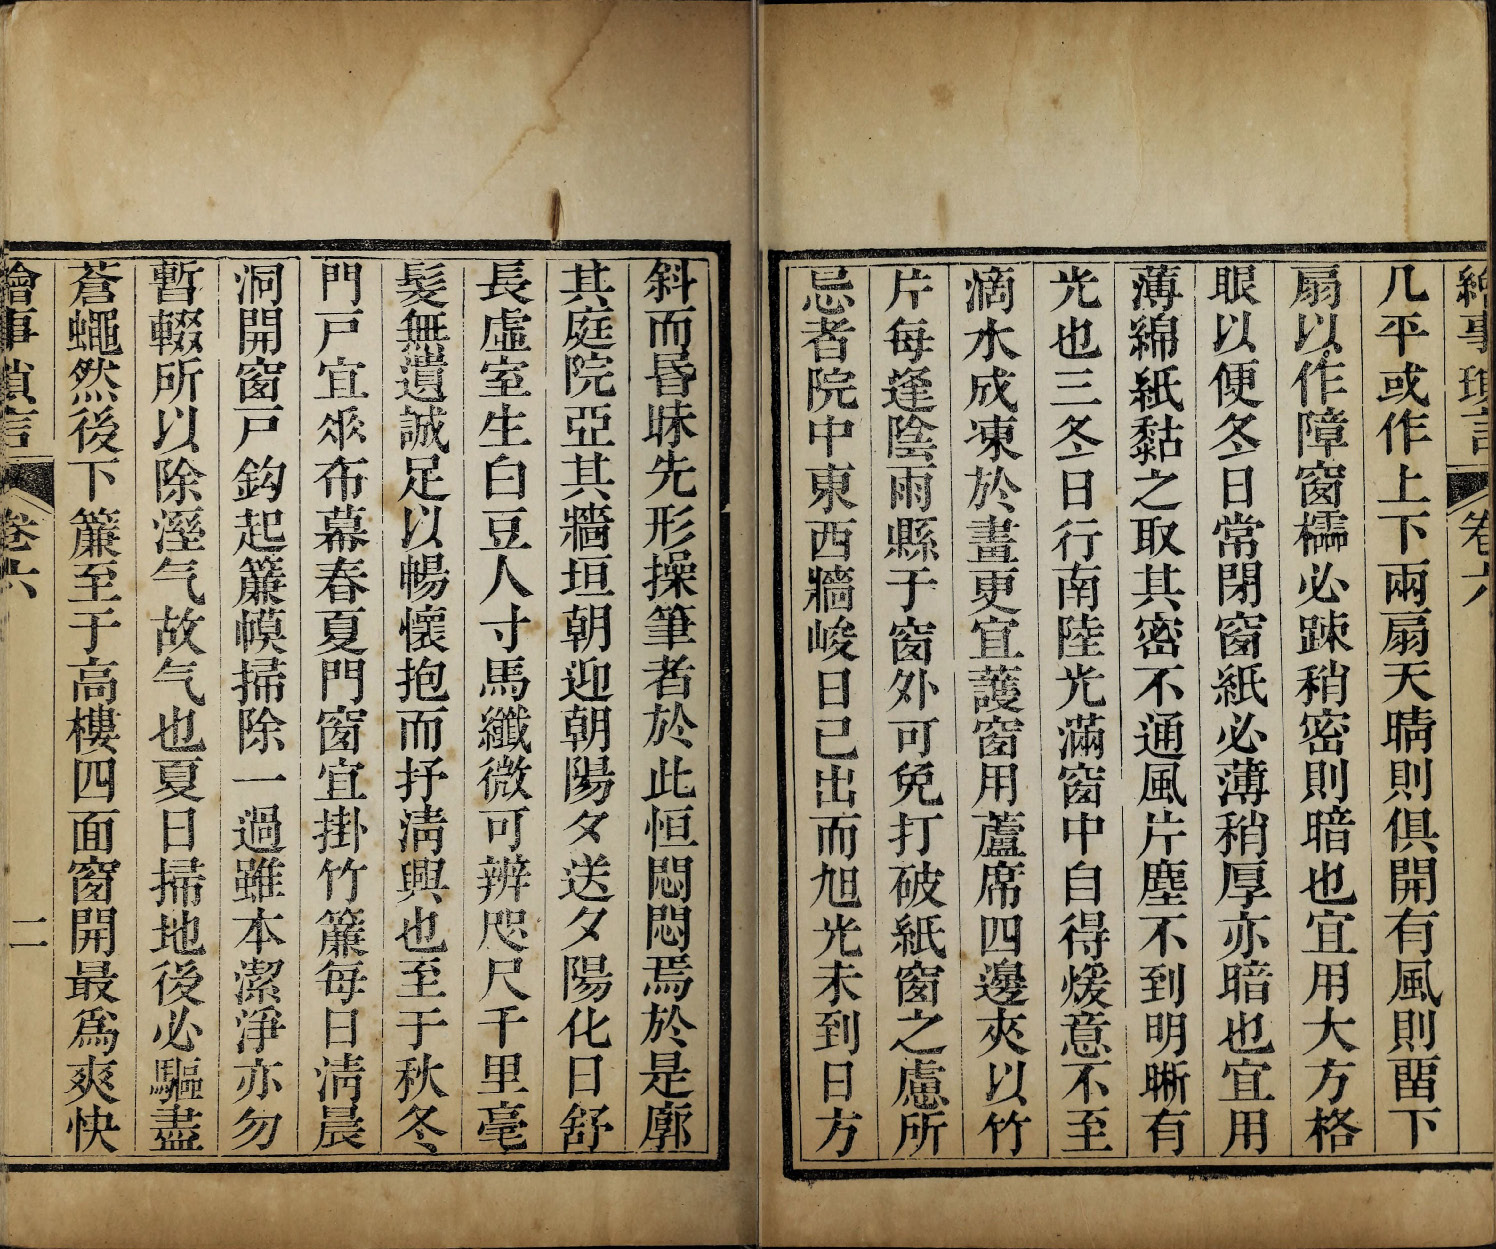 繪事瑣言 卷六
几平或作上下兩扇天晴則俱開有風則留下
扇以作障窗櫺必疎稍密則暗也宜用大方格
眼以便冬日常閉窗紙必薄稍厚亦暗也宜用
薄綿紙黏之取其密不通風片塵不到明晰有
光也三冬日行南陸光滿窗中自得煖意不至
滴水成凍於畫更宜護窗用蘆席四邊夾以竹
片每逢陰雨縣于窗外可免打破紙窗之慮所
忌者院中東西牆峻日已出而旭光未到日方
斜而昬昧先形操筆者於此恒悶悶焉於是廓
其庭院亞其牆垣朝迎朝陽夕送夕陽化日舒
長虛室生白豆人寸馬纖微可辨咫尺千里毫
髮無遺誠足以暢懷抱而抒淸興也至于秋冬
門戸宜𠂹布幕春夏門窗宜掛竹簾每日淸晨
洞開窗戸鈎起簾幙掃除一過雖本潔淨亦勿
暫輟所以除溼气故气也夏日掃地後必驅盡
蒼蠅然後下簾至于高樓四面窗開最爲爽快
繪事瑣言 卷六 二